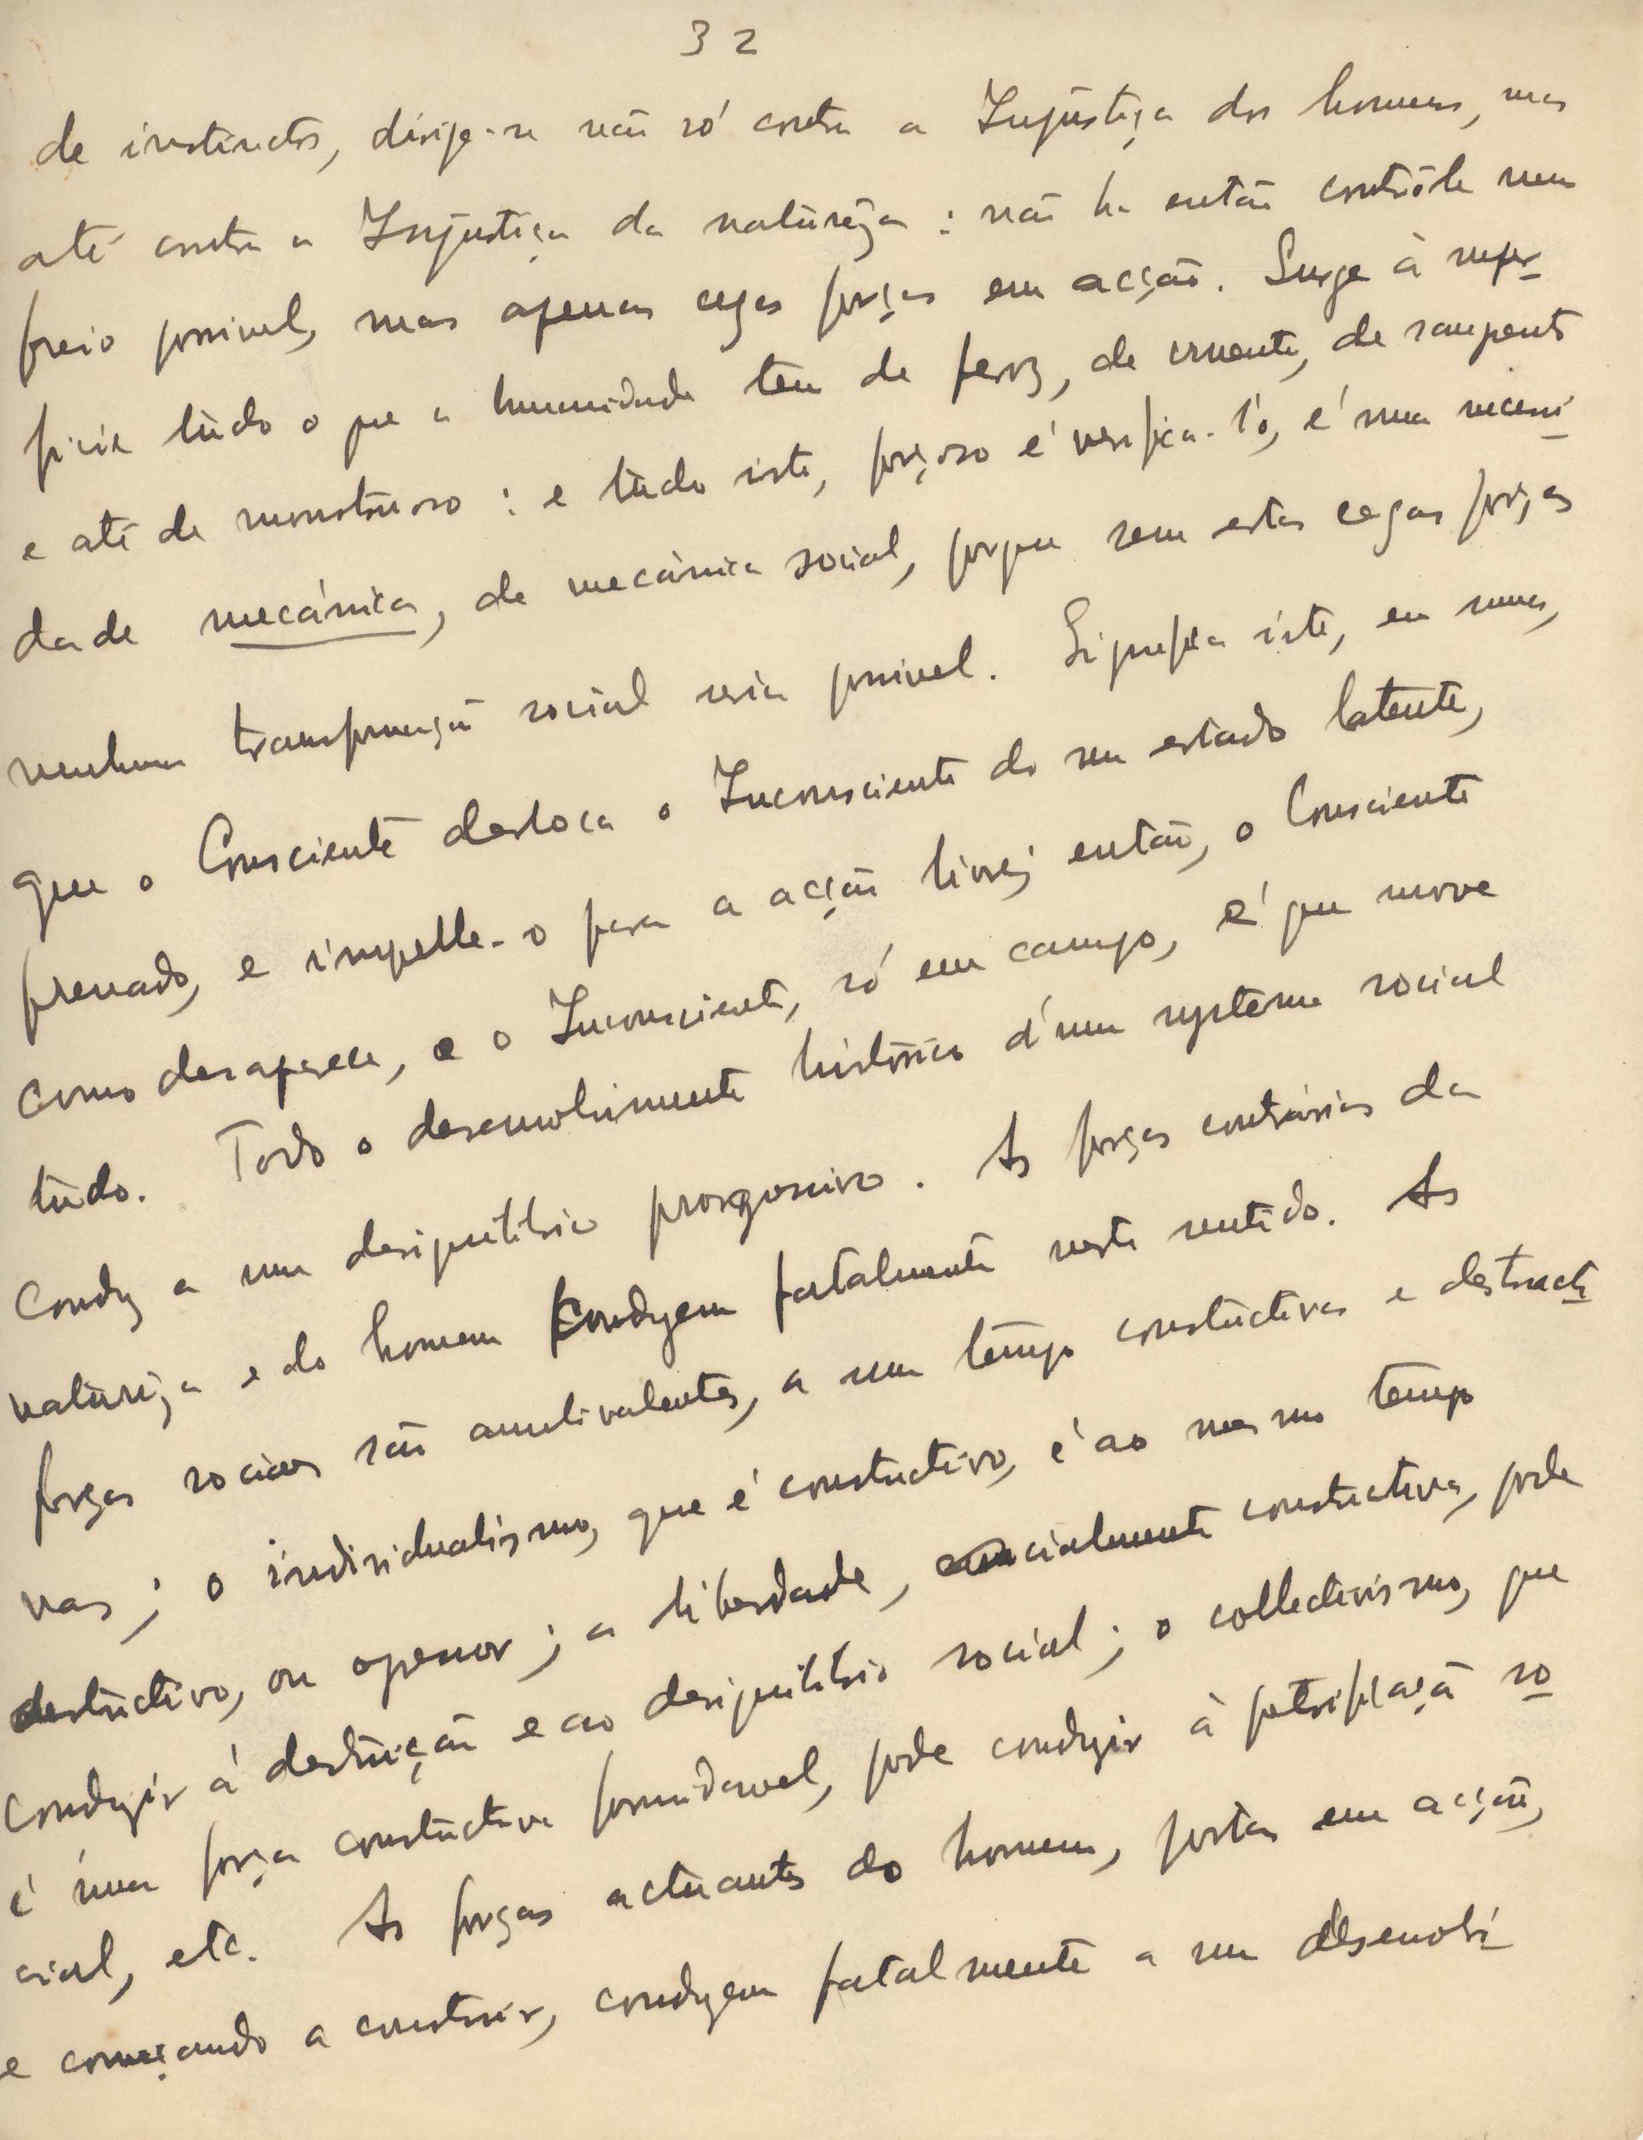 32
de instinctos, dirige-se não só contra a Injustiça dos homens, mas
até contra a Injustiça da natureza : não ha então contrôle nem
freio possivel, mas apenas cegas forças em acção. Surge à super-
ficie tudo o que a humanidade tem de feroz, de cruento, de sangrento
e até de monstruoso : e tudo isto, forçoso é verifica-l'o, é uma necessi-
dade mecánica, de mecánica social, porque sem estas cegas forças
nenhuma transformação social seria possivel. Significa isto, em suma,
que o Consciente desloca o Inconsciente do seu estado latente,
frenado, e impelle-o para a acção livre; então, o Consciente
como desaparece, e o Inconsciente, só em campo, é que move
tudo. Todo o desenvolvimento histórico d'um systema social
conduz a um desiquilibrio progressivo. As forças contrárias da
natureza e do homem conduzem fatalmente neste sentido. As
forças sociaes são ambivalentes, a um tempo constructivas e destructi-
vas ; o individualismo, que é constructivo, é ao mesmo tempo
destructivo, ou opressor ; a liberdade, socialmente constructiva, pode
conduzir á destruição e ao desiquilibrio social ; o collectivismo, que
é uma força constructiva formidavel, pode conduzir à petrificação so-
cial, etc. As forças actuantes do homem, postas em acção,
e começando a construir, conduzem fatalmente a um desenvolvi-